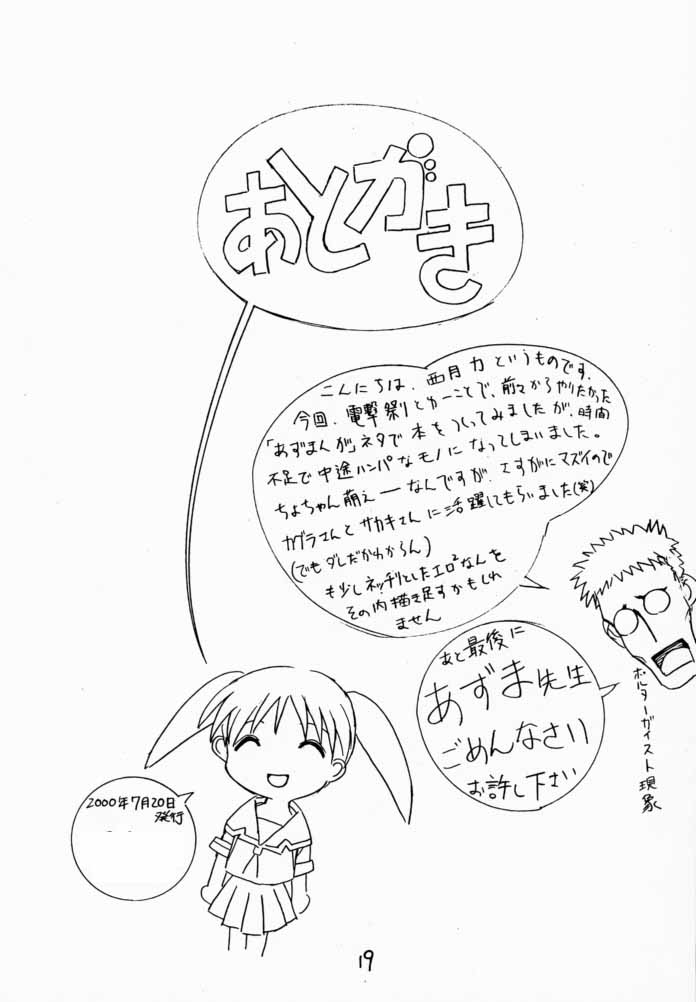 あとがき
こんにちは、西月力というものです。
今回、電撃祭りとゆーことで、前々からやりたかった
「あずまんが」ネタで本をつくってみましたが、時間
不足で中途ハンパなモノになってしまいました。
ちよちゃん萌えーなんですが、さすがにマズイので
カグラさんとサカキさんに活躍してもらいました(笑)
(でもダレだかわからん)
も少しネッチリとしたエロ²なんを
その内描き足すかもしれ
ません
あと最後に
あずま先生
ごめんなさい
お許し下さい
ポルターガイスト現象
2000年7月20日
発行
19